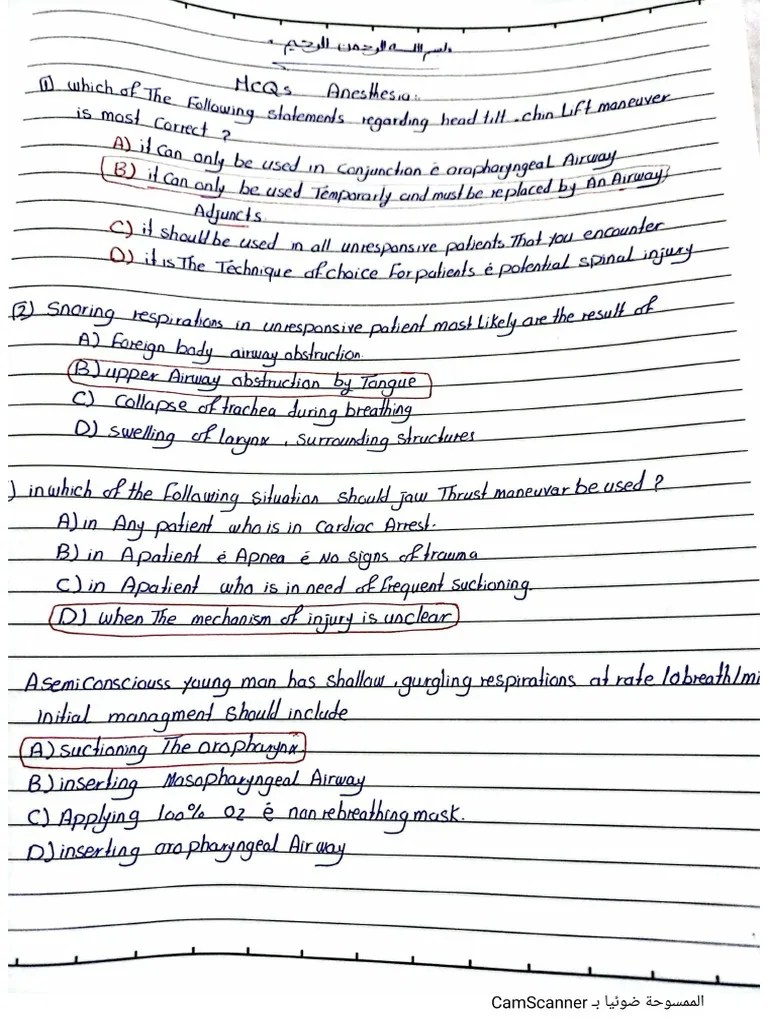 بسم الله الرحمن الرحيم
MCQs Anesthesia:
① which of The Following statements regarding head tilt, chin Lift maneuver
is most Correct ?
A) it Can only be used in Conjunction c̄ oropharyngeal Airway
B) it Can only be used Temporarly and must be replaced by An Airway
Adjuncts
C) it should be used in all unresponsive patients That you encounter
D) it is The Technique of choice For patients c̄ potential spinal injury
② Snoring respirations in unresponsive patient most Likely are the result of
A) Foreign body airway obstruction
B) upper Airway obstruction by Tongue
C) Collapse of trachea during breathing
D) swelling of larynx , surrounding structures
) in which of the Following situation should jaw Thrust maneuvar be used ?
A) in Any patient who is in Cardiac Arrest.
B) in A patient c̄ Apnea c̄ No signs of trauma
C) in A patient who is in need of frequent suctioning.
D) when The mechanism of injury is unclear
A semi Consciouss young man has shallow , gurgling respirations at rate 10 breath/mi
initial managment should include
A) suctioning The oropharynx
B) inserting Nasopharyngeal Airway
C) Applying 100% O2 c̄ non rebreathing mask.
D) inserting oropharyngeal Airway
الممسوحة ضوئيا بـ CamScanner